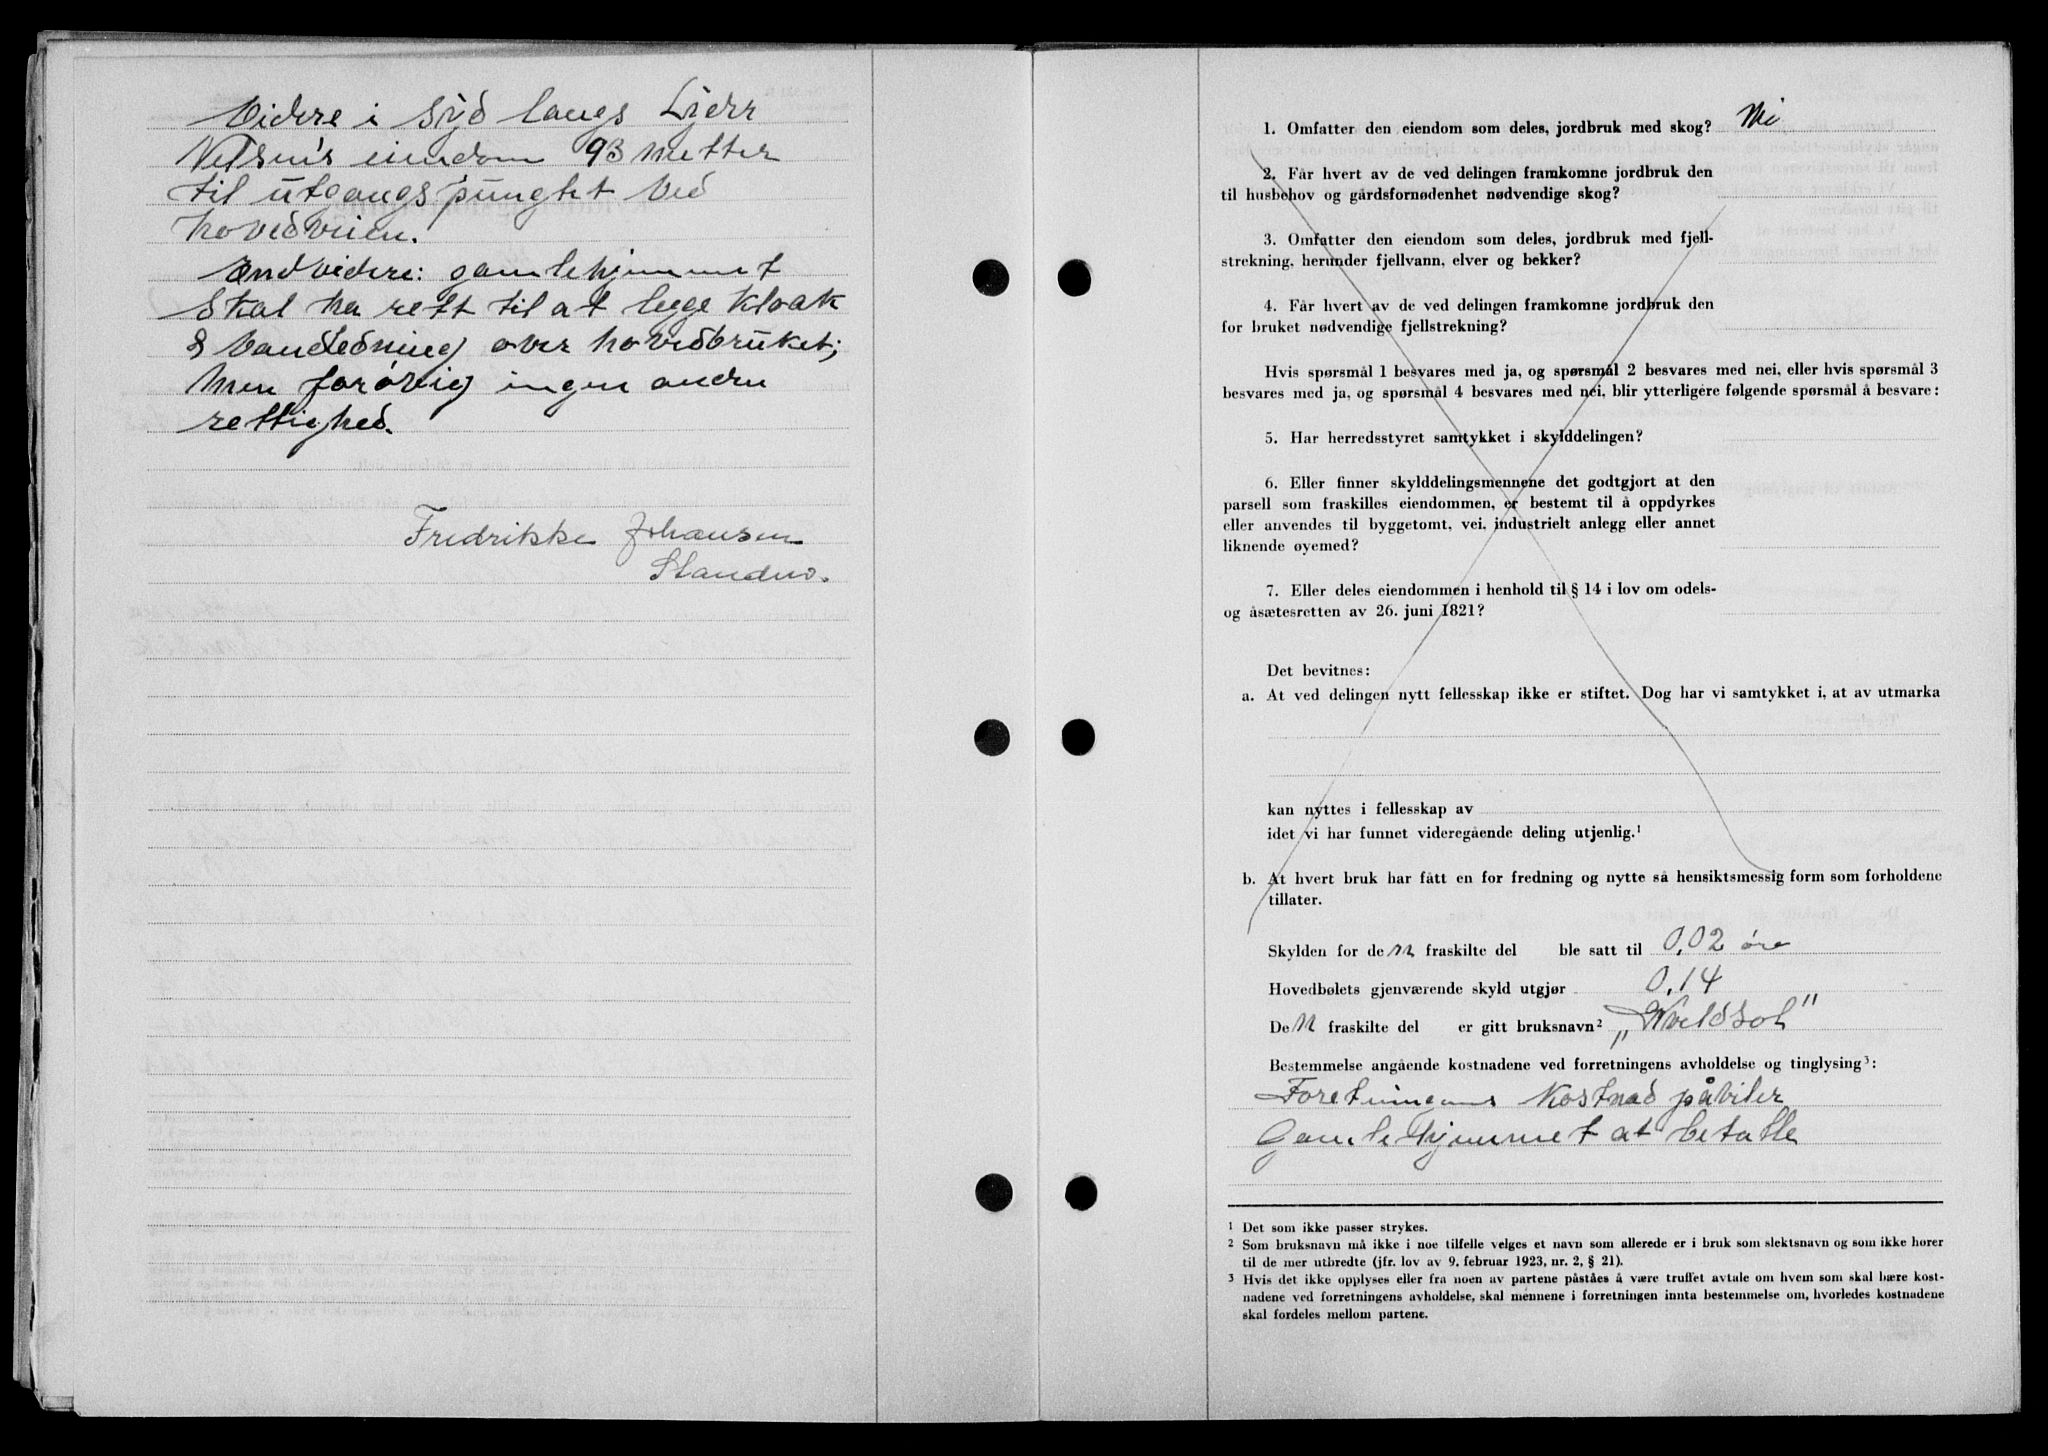 Vidre i syd langs
eiendom 93 metter
til utgangspungtet ved
hovedveien.
Endvidere: gamlehjemmet
skal ha rett til at legge kloak
& vandledning over hovedbruket;
men forøvrig ingen andre
rettighed.
Fredrikke Johansen
1. Omfatter den eiendom som deles, jordbruk med skog? Nei
2. Får hvert av de ved delingen framkomne jordbruk den
til husbehov og gårdsfornødenhet nødvendige skog?
3. Omfatter den eiendom som deles, jordbruk med fjell-
strekning, herunder fjellvann, elver og bekker?
4. Får hvert av de ved delingen framkomne jordbruk den
for bruket nødvendige fjellstrekning?
Hvis spørsmål 1 besvares med ja, og spørsmål 2 besvares med nei, eller hvis spørsmål 3
besvares med ja, og spørsmål 4 besvares med nei, blir ytterligere følgende spørsmål å besvare:
5. Har herredsstyret samtykket i skylddelingen?
6. Eller finner skylddelingsmennene det godtgjort at den
parsell som fraskilles eiendommen, er bestemt til å oppdyrkes
eller anvendes til byggetomt, vei, industrielt anlegg eller annet
liknende øyemed?
7. Eller deles eiendommen i henhold til § 14 i lov om odels-
og åsætesretten av 26. juni 1821?
Det bevitnes:
a. At ved delingen nytt fellesskap ikke er stiftet. Dog har vi samtykket i, at av utmarka
kan nyttes i fellesskap av
idet vi har funnet videregående deling utjenlig.¹
b. At hvert bruk har fått en for fredning og nytte så hensiktsmessig form som forholdene
tillater.
Skylden for den fraskilte del ble satt til 0,02 øre
Hovedbølets gjenværende skyld utgjør 0,14
Den fraskilte del er gitt bruksnavn² „Kveldsol"
Bestemmelse angående kostnadene ved forretningens avholdelse og tinglysing³:
kostnad påviler
Gamlehjemmet at betalle
¹ Det som ikke passer strykes.
² Som bruksnavn må ikke i noe tilfelle velges et navn som allerede er i bruk som slektsnavn og som ikke hører
til de mer utbredte (jfr. lov av 9. februar 1923, nr. 2, § 21).
³ Hvis det ikke opplyses eller fra noen av partene påståes å være truffet avtale om hvem som skal bære kost-
nadene ved forretningens avholdelse, skal mennene i forretningen innta bestemmelse om, hvorledes kostnadene
skal fordeles mellom partene.